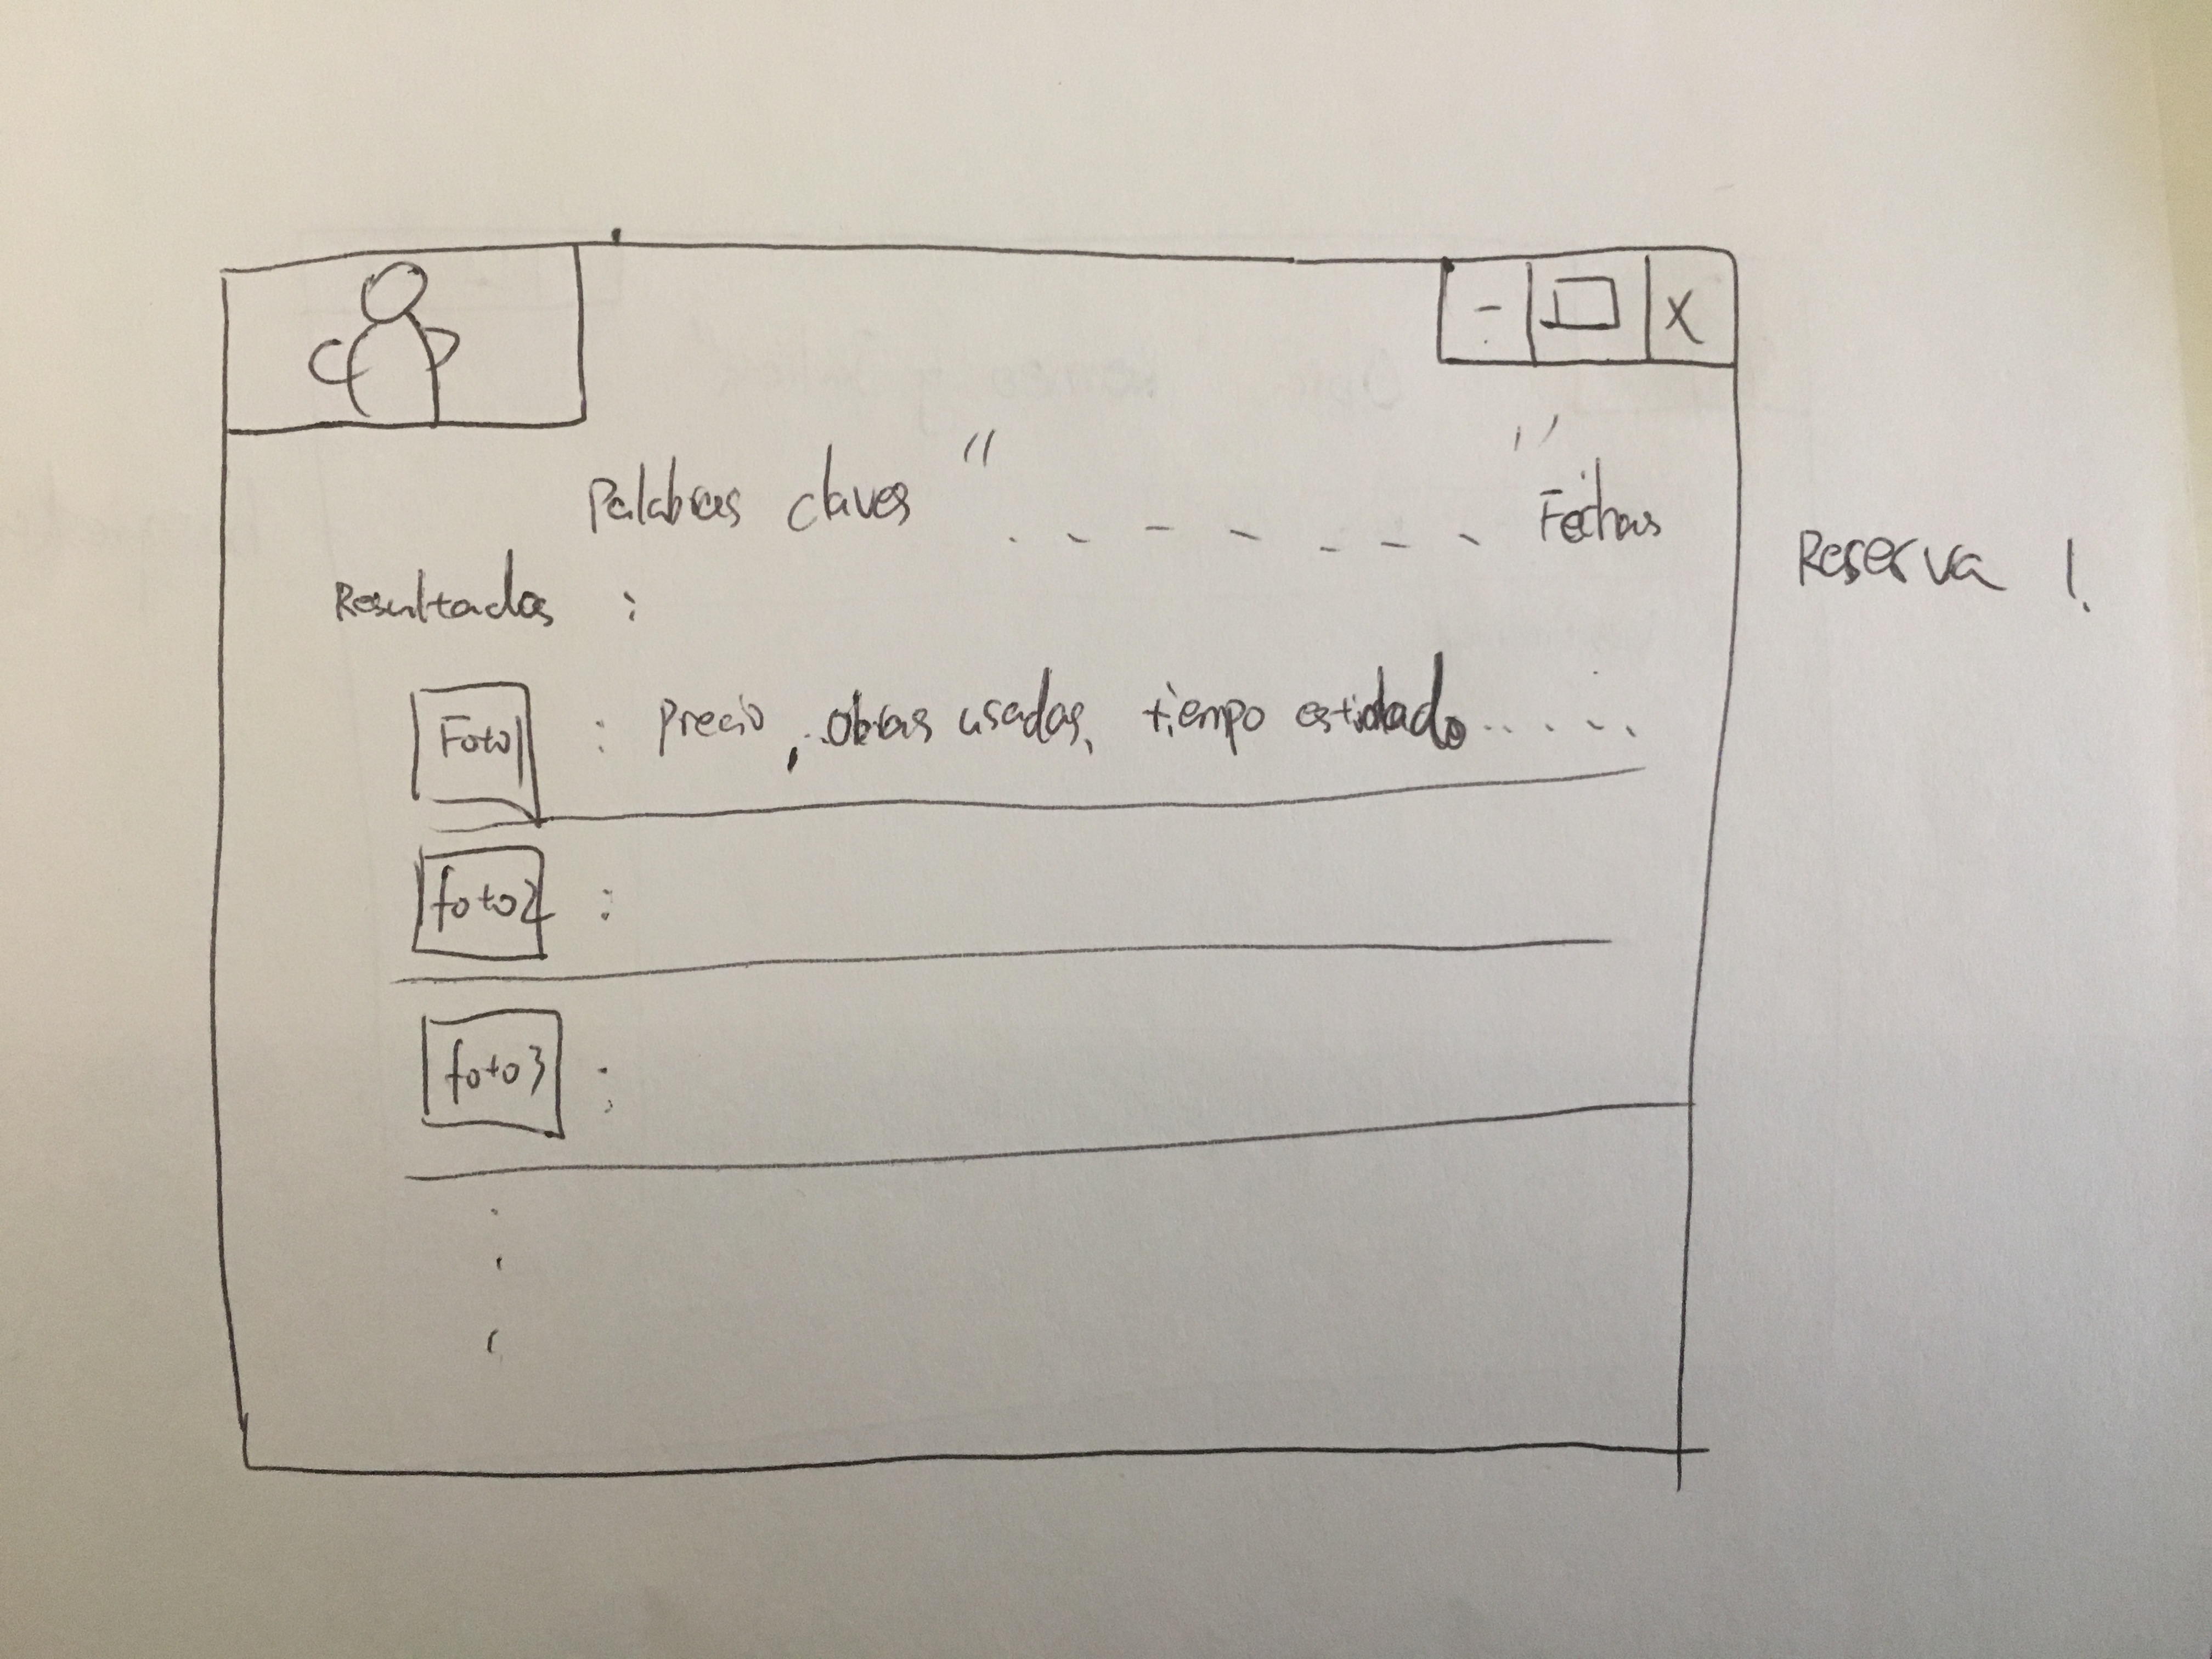 - □ X
Palabras claves " . - - - - - - " Fechas
Resultados :
Foto1 : Precio, ..obras usadas, tiempo estidado.....
foto2 :
foto3 :
Reserva 1.